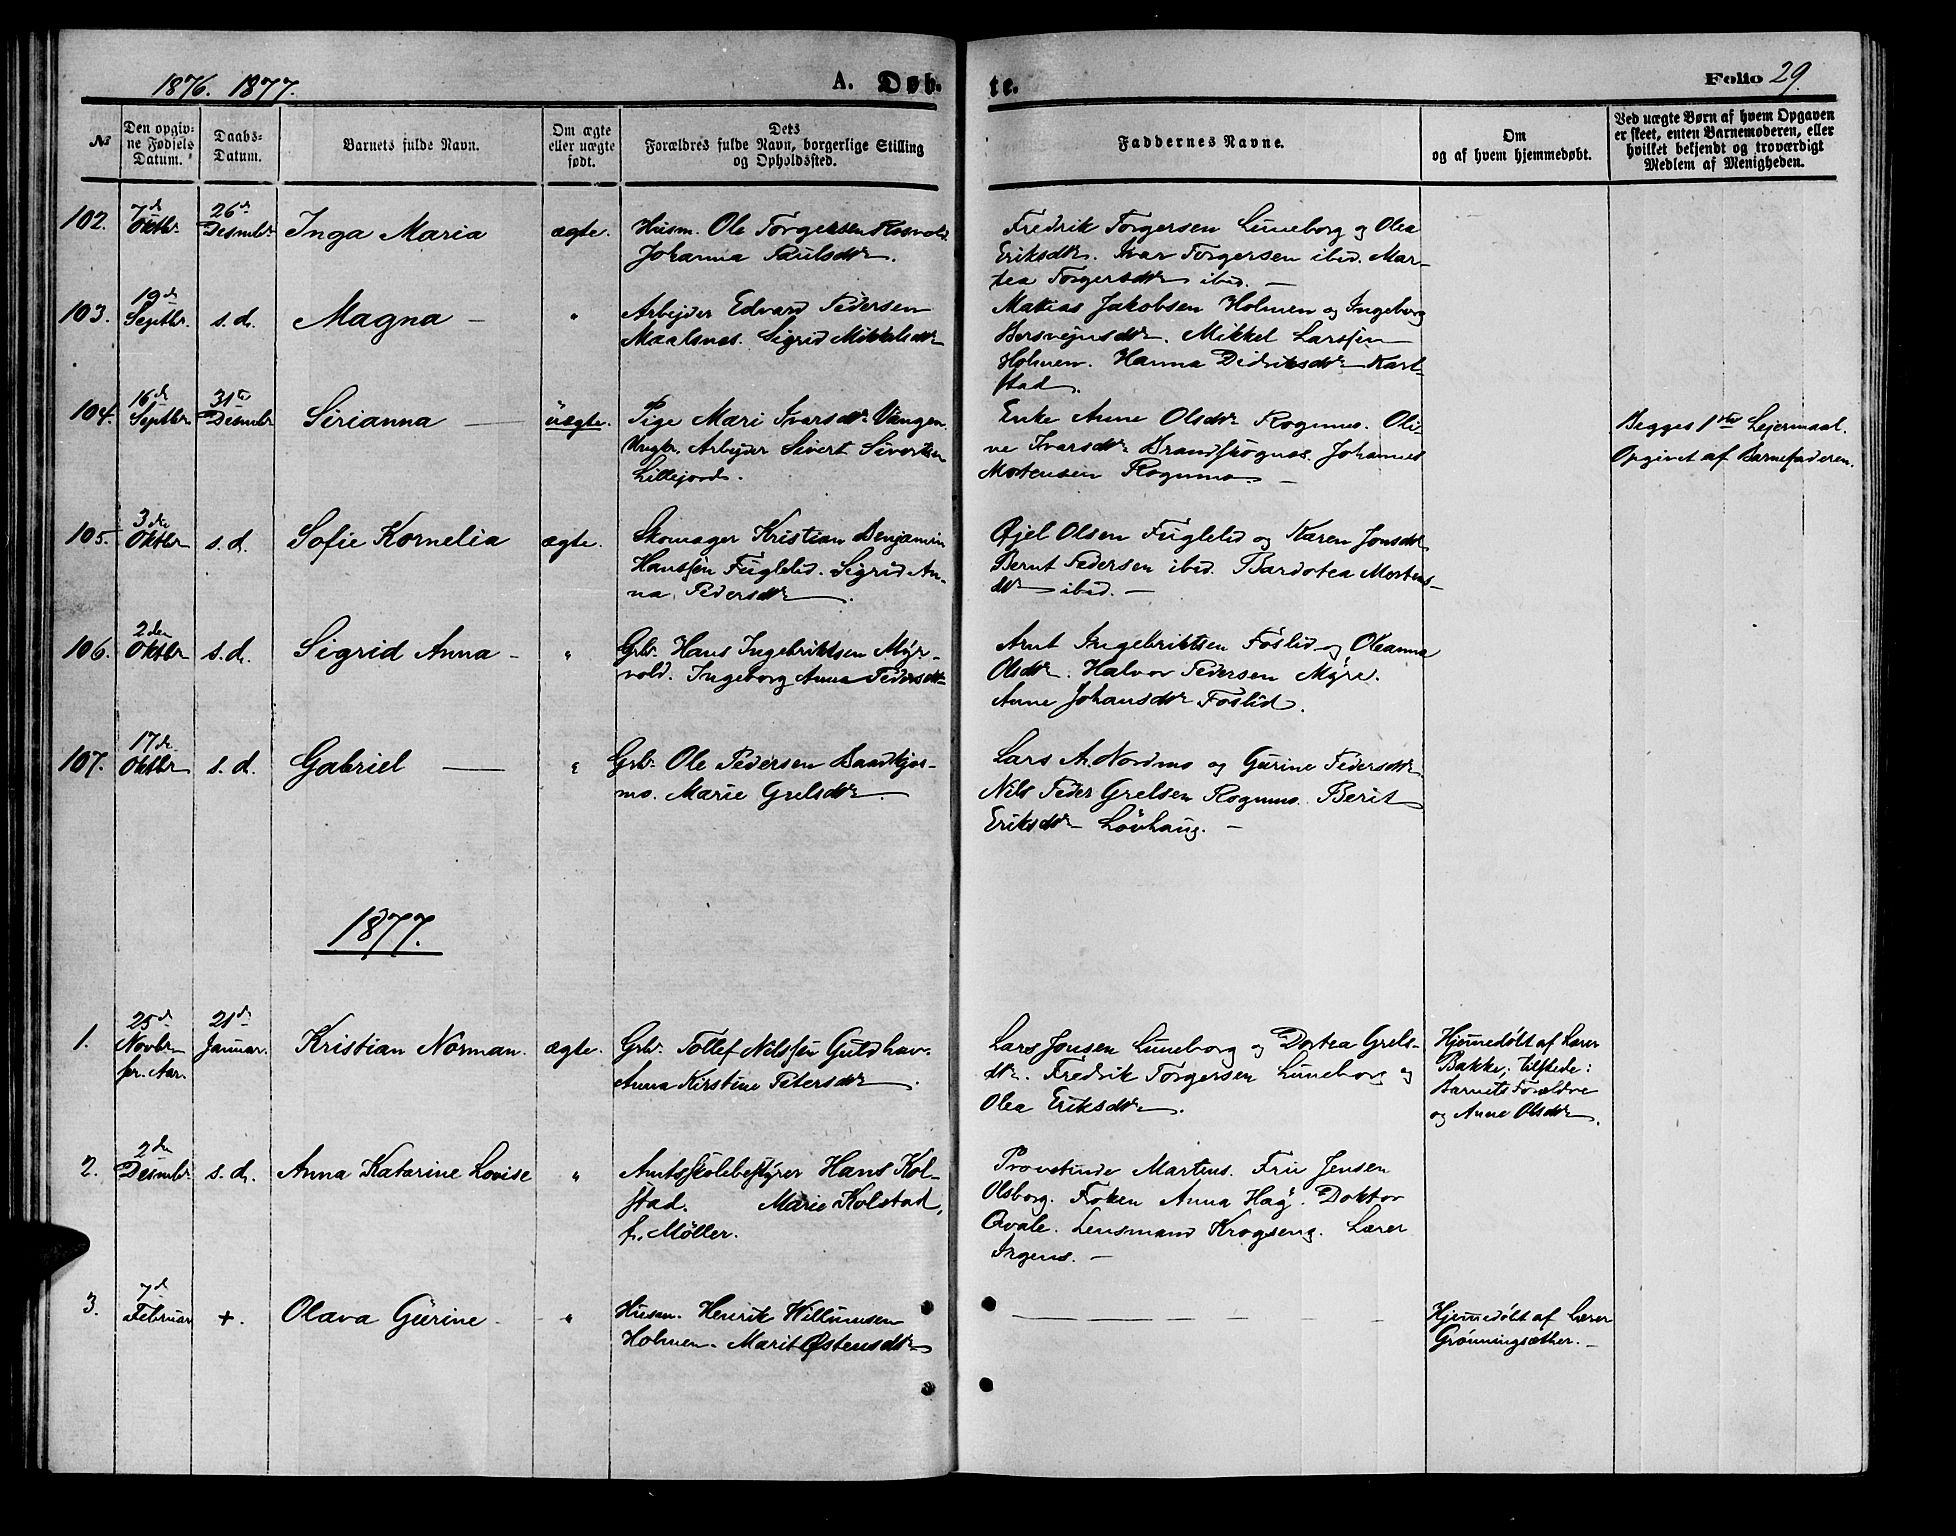 1876. 1877.
A. Døb-
te.
Folio 29.
№
Den opgiv-
ne Fødsels
Datum.
Daabs-
Datum.
Barnets fulde Navn.
Om ægte
eller uægte
født.
Dets
Forældres fulde Navn, borgerlige Stilling
og Opholdssted.
Faddernes Navne.
Om
og af hvem hjemmedøbt.
Ved uægte Børn af hvem Opgaven
er skeet, enten Barnemoderen, eller
hvilket bekjendt og troværdigt
Medlem af Menigheden.
102.
7de
Oktbr.
26de
Desmbr.
Inga Maria
ægte.
Husm. Ole Torgersen Rosvold.
Johanna Paulsdtr.
Fredrik Torgersen Luneborg og Olea
Eriksdtr. Ivar Torgersen ibid. Mar-
tea Torgersdtr ibid. —
103.
19de
Septbr.
s. d.
Magna —
"
Arbejder Edvard Pedersen
Maalsnes. Sigrid Mikkelsdtr
Matias Jakobsen Holmen og Ingeborg
Hersvejnsdtr. Mikkel Larssen
Holmen. Hanna Didriksdtr Karl-
stad.
104.
16de
Septbr.
31te
Desmbr
Sirianna —
uægte.
Pige Mari Ivarsdtr Vangen.
Ungkr. Arbejder Sivert Sivertsen
Lillejord.
Enke Anne Olsdtr Rognmo. Oli-
ne Ivarsdtr Brandskognes. Johannes
Mortensen Rognmo. —
Begges 1ste Lejermaal.
Opgivet af Barnefaderen.
105.
3die
Oktbr
s. d.
Sofie Kornelia
ægte.
Skomager Kristian Benjamin
Hanssen Fuglelid. Sigrid An-
na Pedersdtr.
Øjel Olsen Fuglelid og Karen Jonsdtr
Bernt Pedersen ibid. Bardotea Mortens-
dtr ibid. —
106.
2den
Oktbr
s. d.
Sigrid Anna —
"
Grbr. Hans Ingebriktsen Myr-
vold. Ingeborg Anna Pedersdtr
Arnt Ingebriktsen Foslid og Oleanna
Olsdtr. Halvor Pedersen Myre.
Anne Johansdtr Foslid.
107.
17de
Oktbr
s. d.
Gabriel —
"
Grbr. Ole Pedersen Bandkjos-
mo. Marie Grelsdtr.
Lars A. Nordmo og Gurine Pedersdtr
Nils Peder Grelsen Rognmo. Berit
Eriksdtr Løvhaug. —
1877.
1.
25de
Novbr
fr. Aar.
21de
Januar.
Kristian Norman.
ægte.
Grbr. Tollef Nilssen Guldhav.
Anna Kirstine Petersdtr.
Lars Jonsen Luneborg og Dortea Grels-
dtr. Fredrik Torgersen Luneborg og
Olea Eriksdtr.
Hjemmedøbt af Lærer
Bakke; tilstede:
Barnets Forældre
og Anne Olsdtr.
2.
2den
Desmbr
s. d.
Anna Katarine Lovise
"
Amtsskolebestyrer Hans Kol-
stad. Marie Kolstad,
f. Möller.
Provstinde Martens. Fru Jensen
Olsborg. Frøken Anna Hag. Doktor
Qvale. Lensmand Krogseng. Lærer
Irgens. —
3.
7de
Februar
+.
Olava Gurine —
"
Husm. Henrik Willumsen
Holmen. Marit Østensdtr
Hjemmedøbt af Lærer
Grønningsæther. —